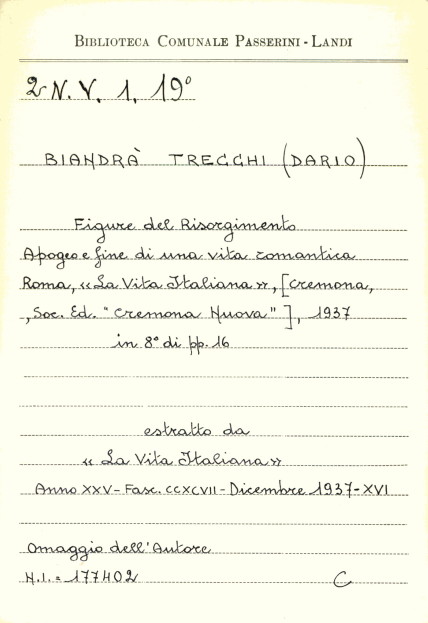 BIBLIOTECA COMUNALE PASSERINI - LANDI
2 N. V. 1. 19°
BIANDRÀ TRECCHI (DARIO)
Figure del Risorgimento
Apogeo e fine di una vita romantica
Roma, «La Vita Italiana», [Cremona,
, Soc. Ed. "Cremona Nuova"], 1937
in 8° di pp. 16
estratto da
«La Vita Italiana»
Anno XXV - Fasc. CCXCVII - Dicembre 1937-XVI
Omaggio dell'Autore
N.I. = 177402 C